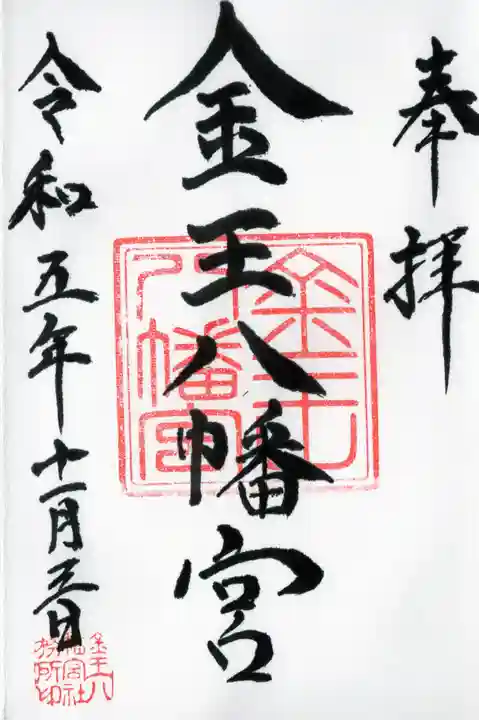 奉拝
金王八幡宮
金王八幡宮
令和五年十一月三日
金王八幡宮社務所印